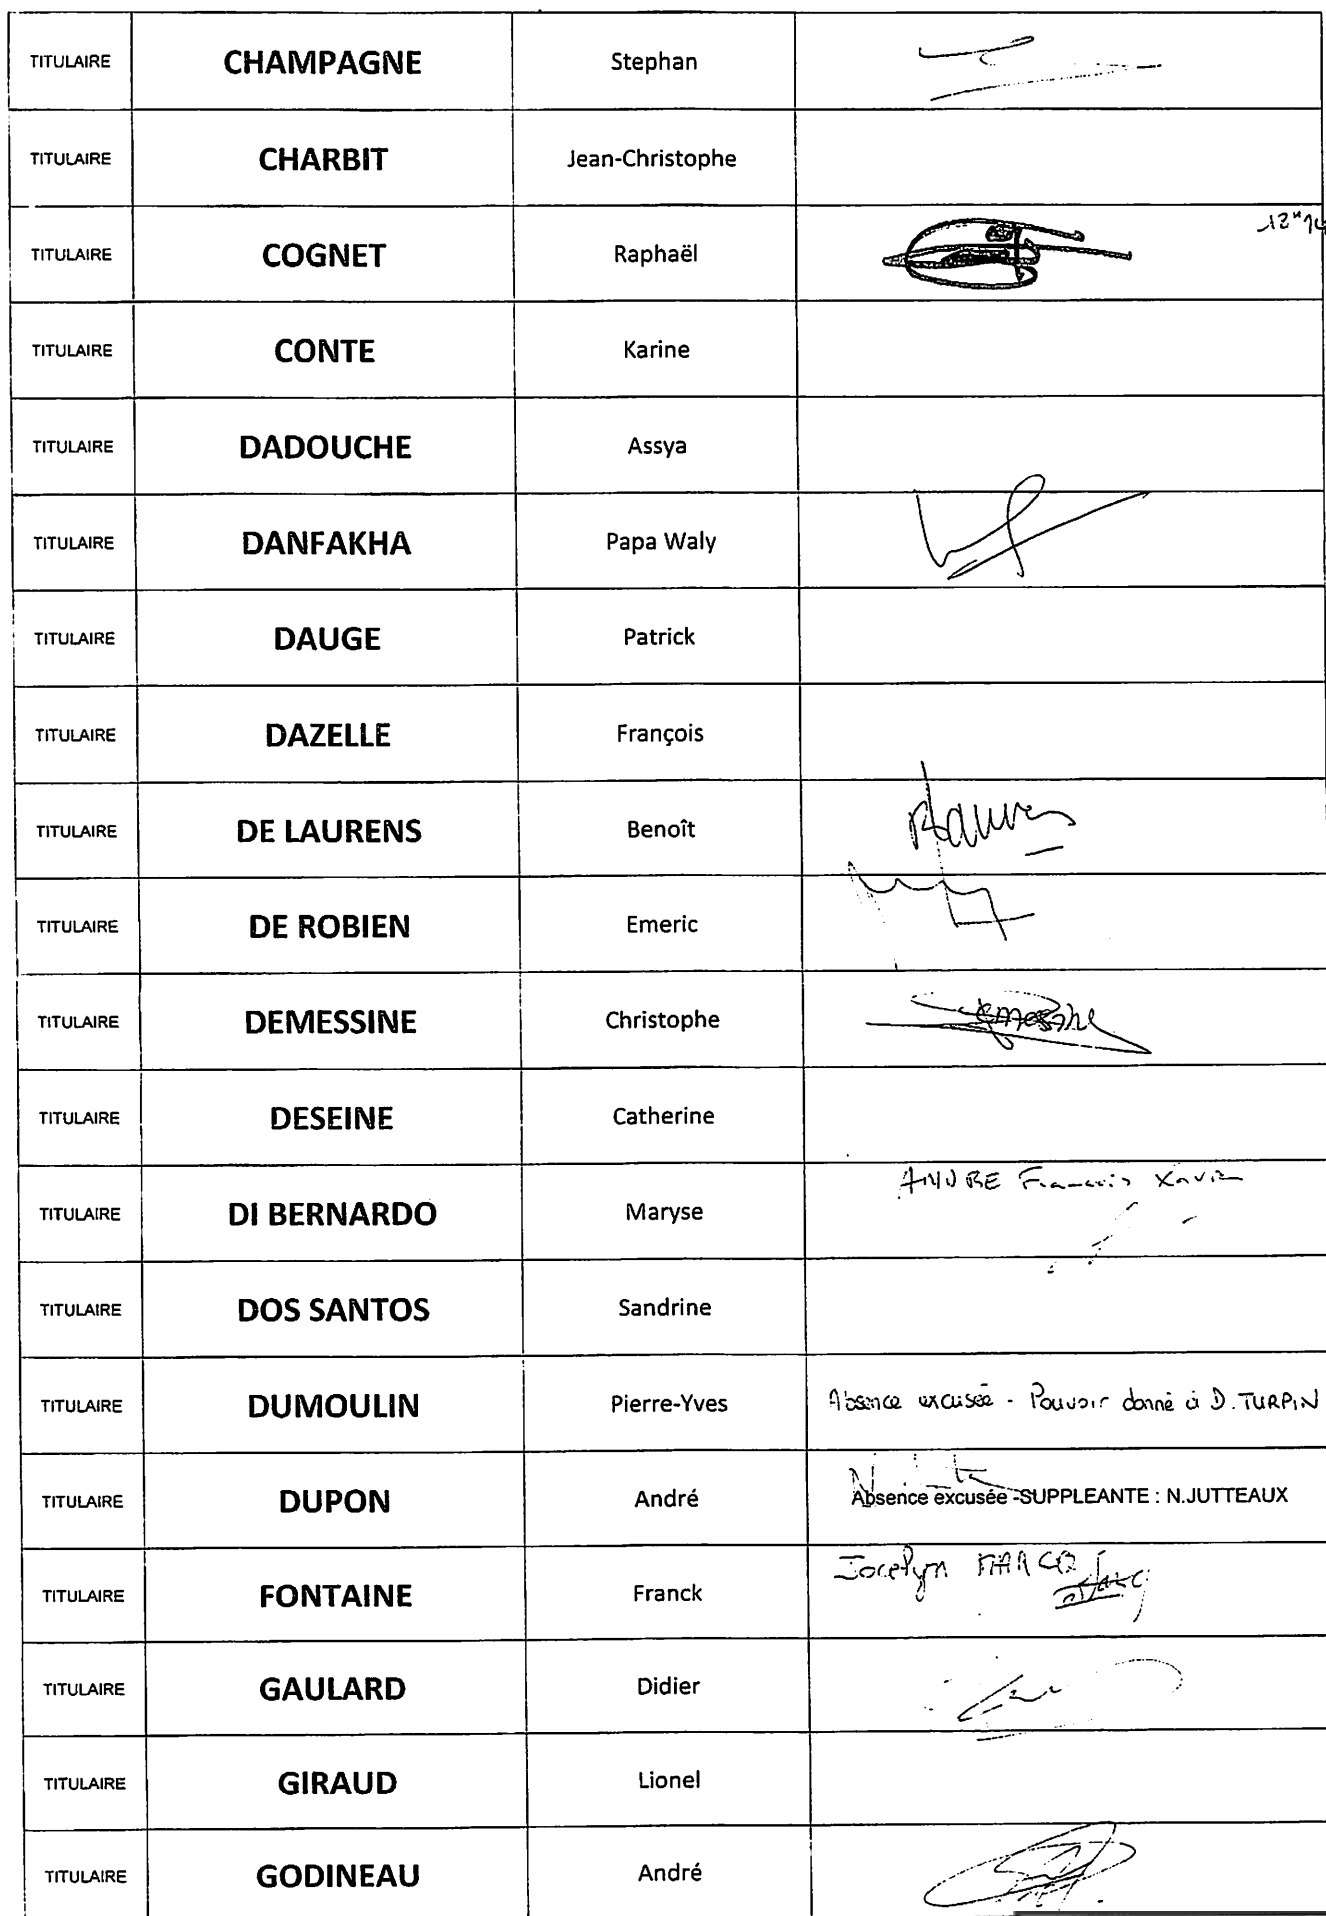 TITULAIRE CHAMPAGNE Stephan
TITULAIRE CHARBIT Jean-Christophe
TITULAIRE COGNET Raphaël
TITULAIRE CONTE Karine
TITULAIRE DADOUCHE Assya
TITULAIRE DANFAKHA Papa Waly
TITULAIRE DAUGE Patrick
TITULAIRE DAZELLE François
TITULAIRE DE LAURENS Benoît
TITULAIRE DE ROBIEN Emeric
TITULAIRE DEMESSINE Christophe
TITULAIRE DESEINE Catherine
TITULAIRE DI BERNARDO Maryse ANDRE François Xavier
TITULAIRE DOS SANTOS Sandrine
TITULAIRE DUMOULIN Pierre-Yves Absence excusée - Pouvoir donné à D. TURPIN
TITULAIRE DUPON André Absence excusée -SUPPLEANTE : N.JUTTEAUX
TITULAIRE FONTAINE Franck Jocelyn MARCQ
TITULAIRE GAULARD Didier
TITULAIRE GIRAUD Lionel
TITULAIRE GODINEAU André